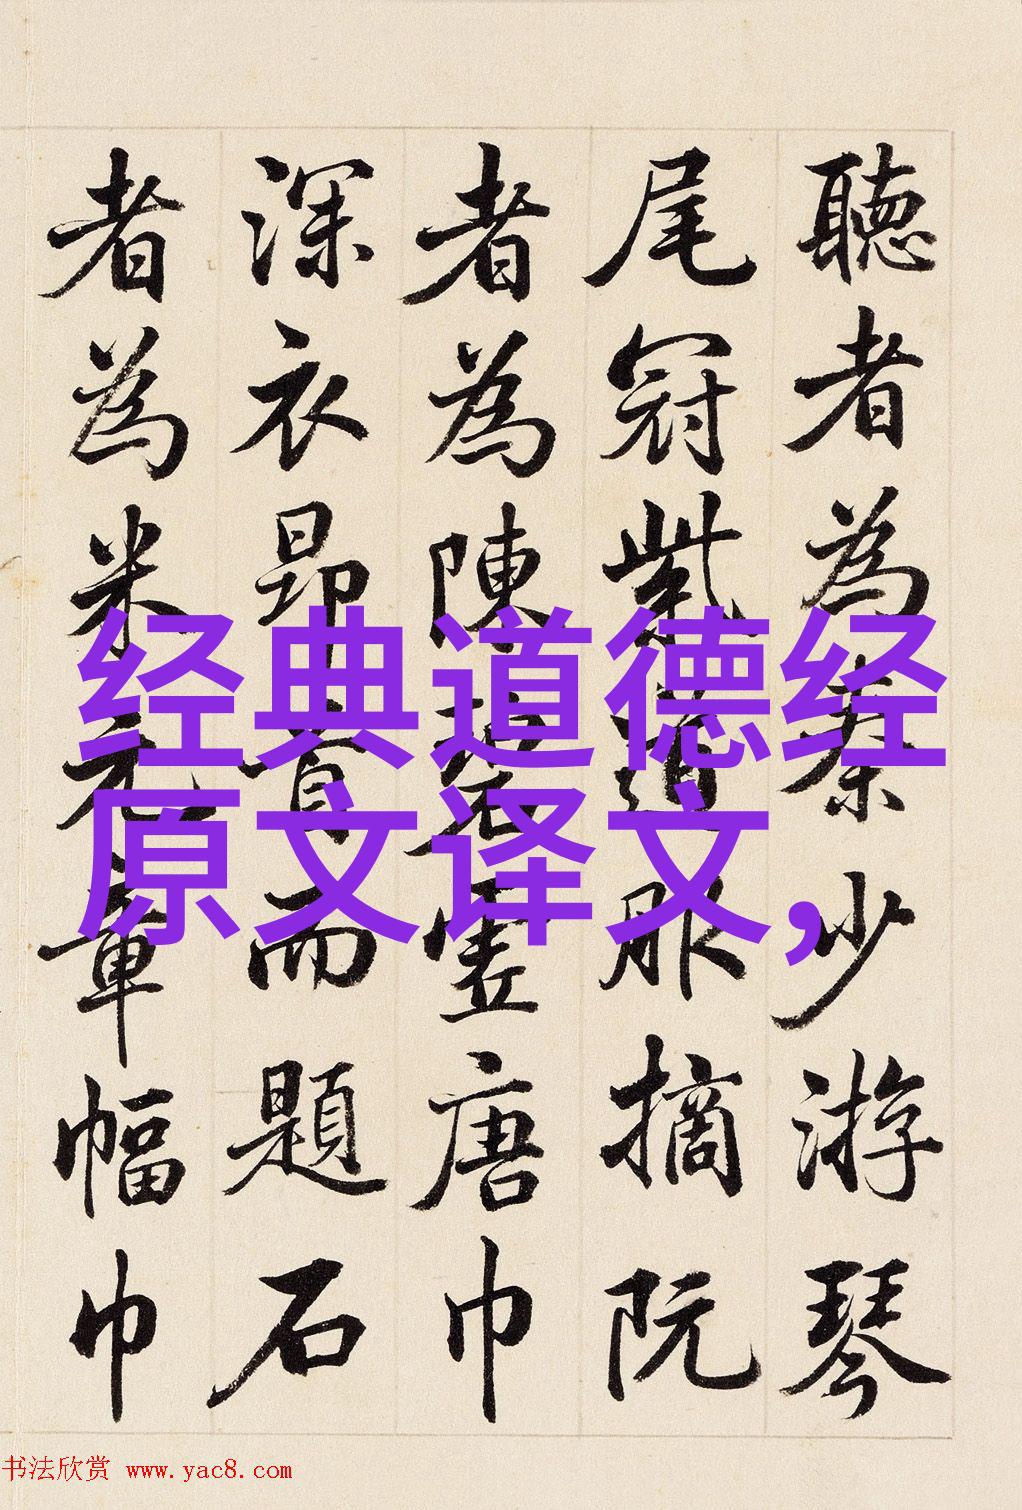 聽者為秦少游琴
尾冠紫道服摘阮
者為陳碧虛唐巾
深衣昂首而題石
者為米元章幅巾
经典道德经
原文译文,
书法欣赏 www.yac8.com